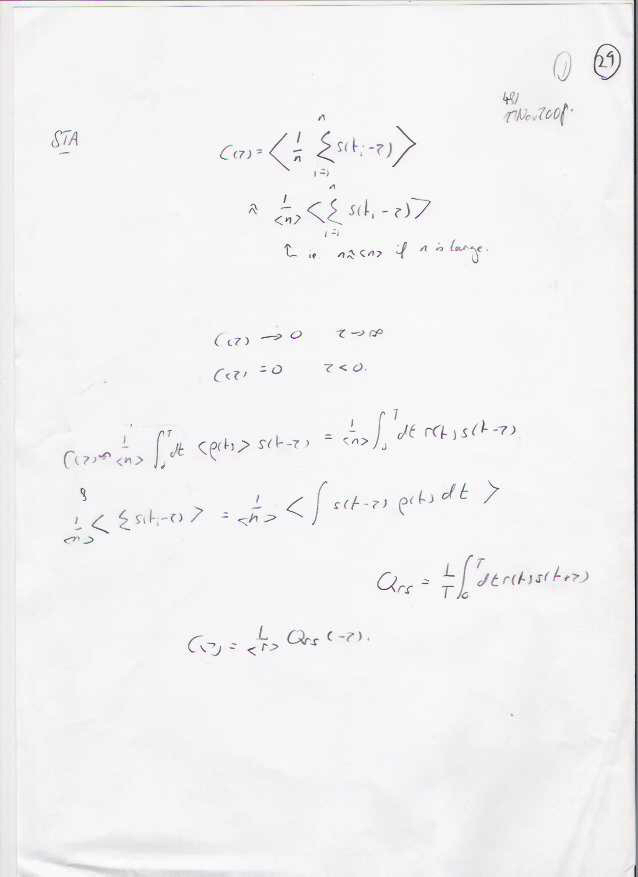 ① ㉙
Nov 2008.
STA
C(τ) = < 1/n Σ_{i=1}^{n} s(t_i - τ) >
≈ 1/<n> < Σ_{i=1}^{n} s(t_i - τ) >
↑ ie n≈<n> if n is large.
C(τ) → 0 τ → ∞
C(τ) = 0 τ < 0.
C(τ) = 1/<n> ∫_0^T dt <ρ(t)> s(t-τ) = 1/<n> ∫_0^T dt r(t) s(t-τ)
1/<n> < Σ s(t_i-τ) > = 1/<n> < ∫ s(t-τ) ρ(t) dt >
Q_rs = 1/T ∫_0^T dt r(t) s(t+τ)
C(τ) = 1/<r> Q_rs (-τ).